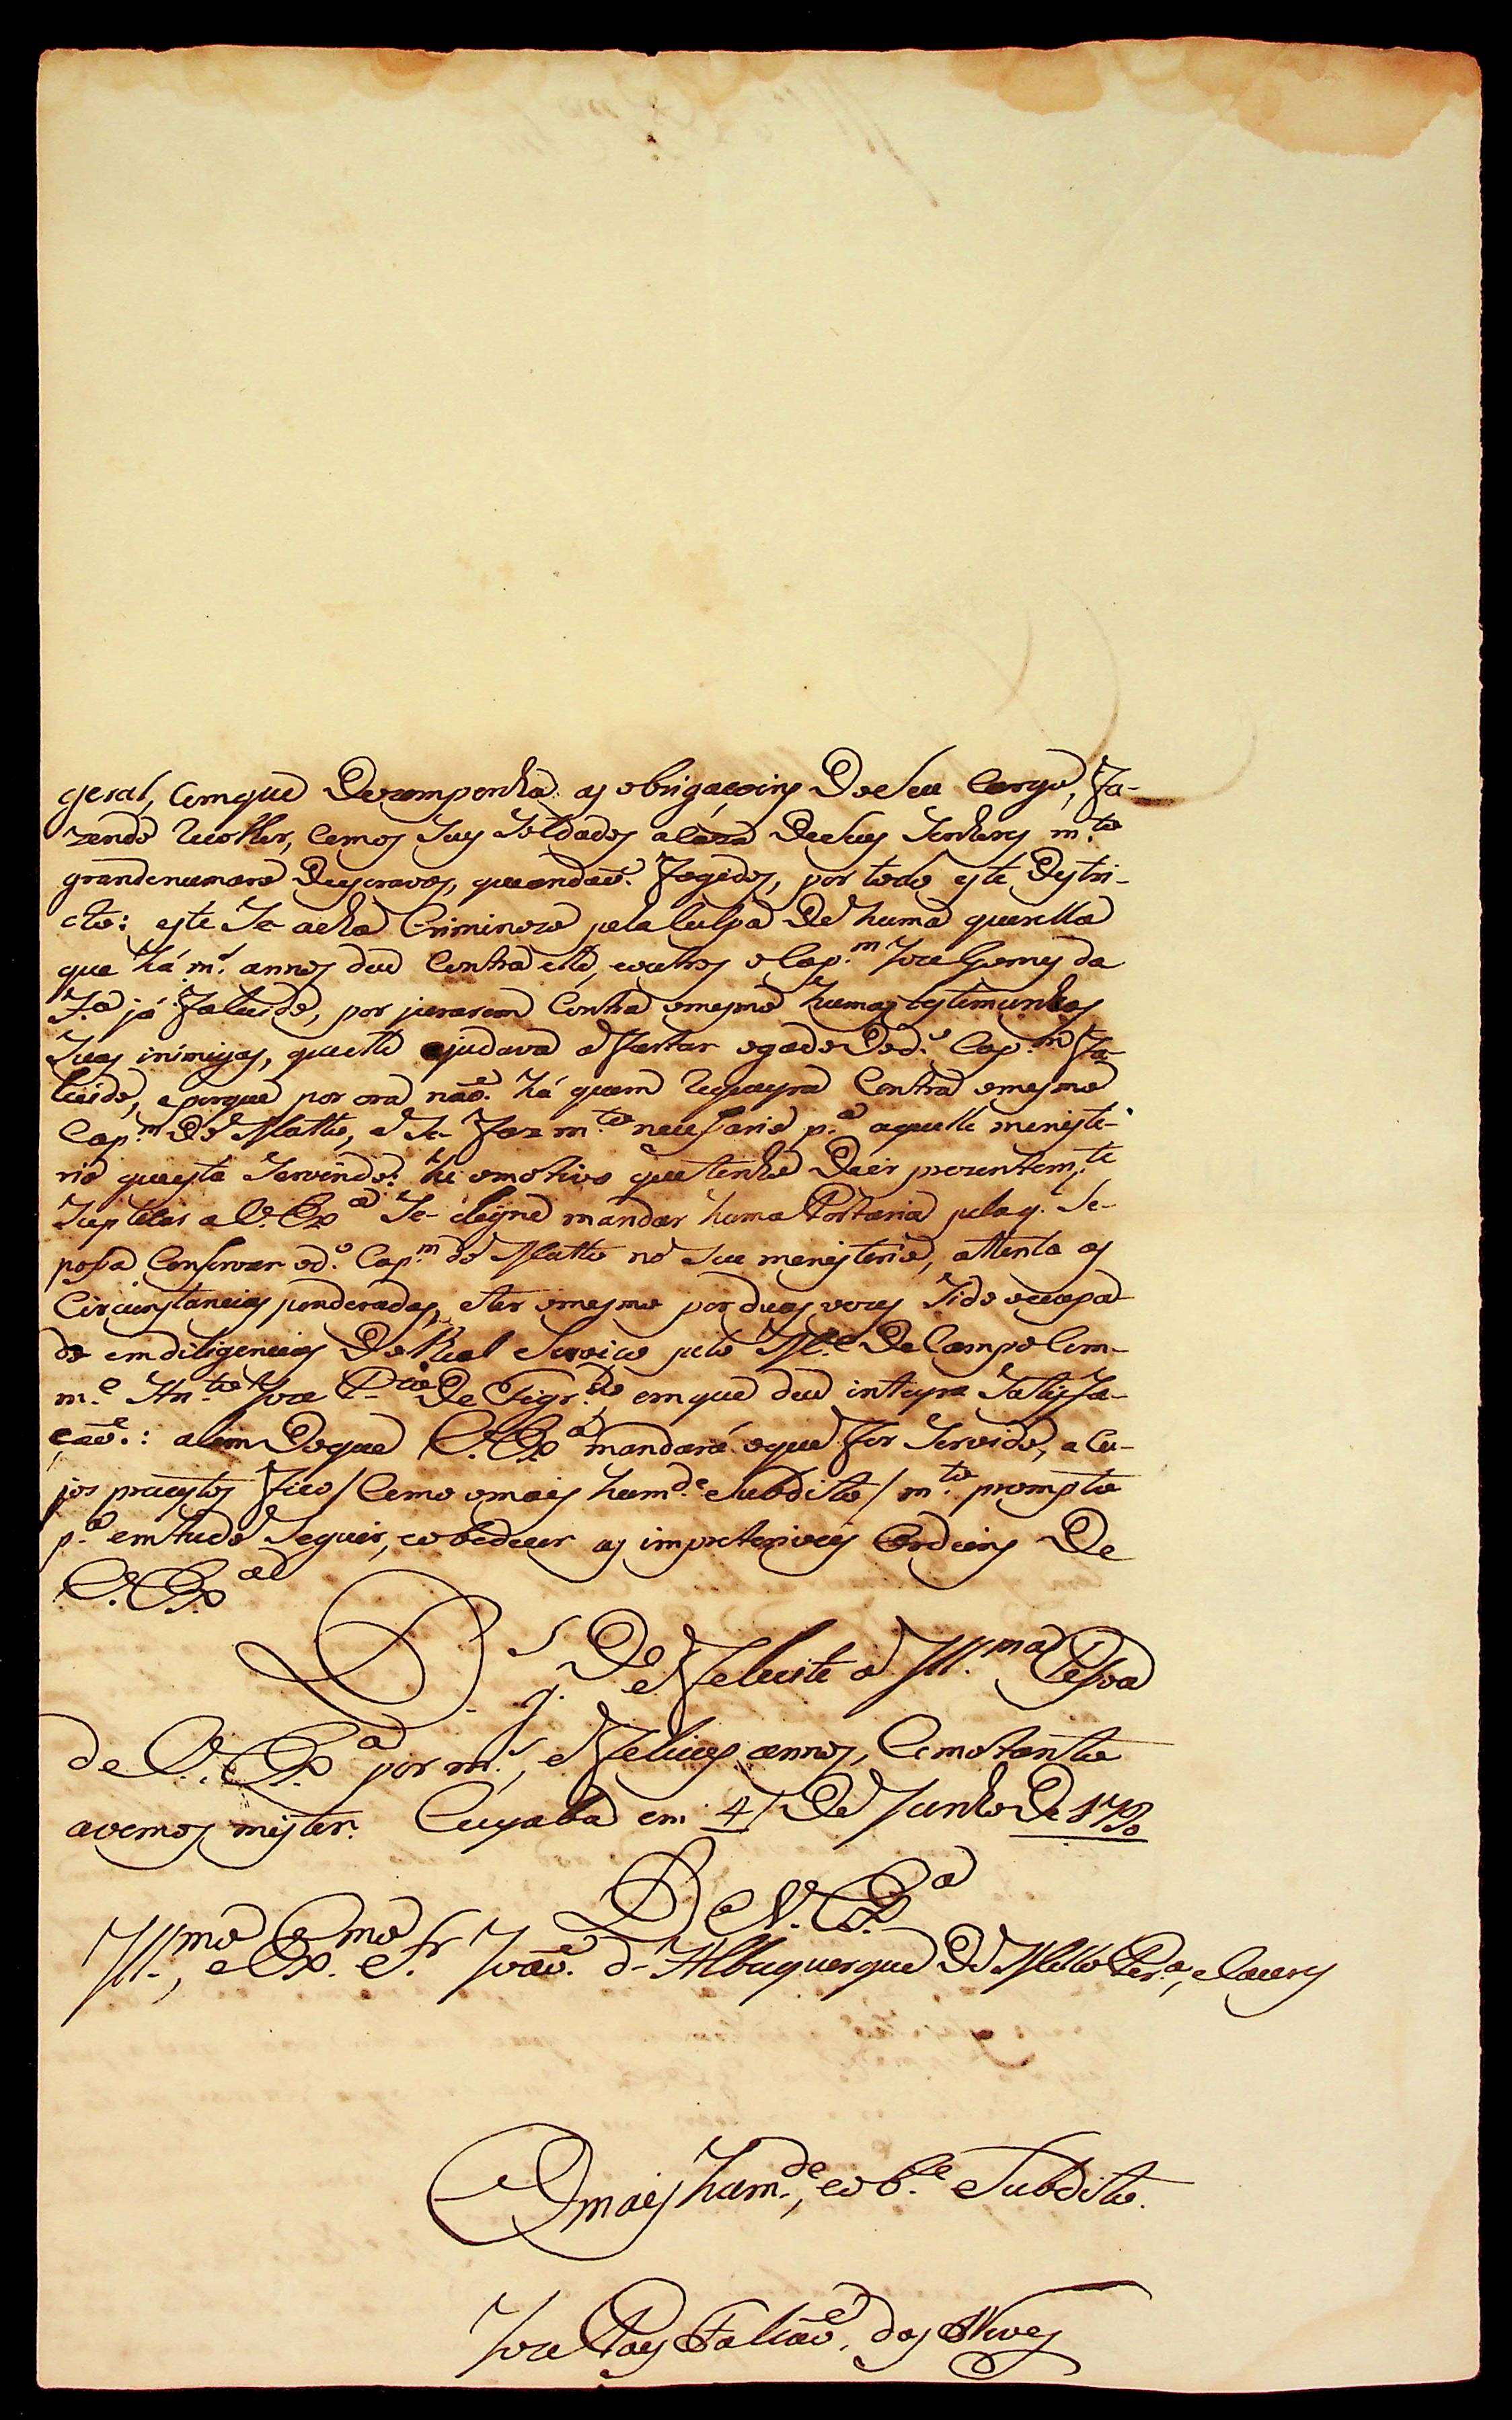 geral, Comque Dezempenha as obrigaçoins DoSeu Cargo, Fa-
zendo recolher, Comos Seus Soldados a caza DeSeus Senhores m.to
grandenumaro Deescravos, queandaõ. Fogidos, por todo este Destri-
cto: este Se acha Criminozo pelaCulpa De huma querella
que há m.s annos deu Contra elle, eoutros oCap.m Joze Gomes da
S.a já Falecido, por jurarem Contra omesmo humas testimunhas
Suas inimigas, queelle ajudava a Furtar ogado Dod.o Cap.m Fa-
lecido, eporque por ora naõ. há quem Requeyra Contra omesmo
Cap.m Do Matto, e Se Faz m.to necessario p.a aquelle meniste-
rio queesta Servindo: he omotivo quetenho Deir prezentem.te
Suplicar a V. Ex.a Se-digne mandar huma Portaria pelaq. Se-
possa Conservar od.o Cap.m do Matto no Seu menisterio, attenta as
Circunstancias ponderadas, eter omesmo porduas vezes Sido occupa-
do emdiligencias DoReal Serviço pelo M.e DeCampo Com-
m.e An.to Joze P.to De Figr.do, emque deu inteyra Satisfa-
çaõ.: alem Doque V. Ex.a mandará oque For Servido, aCu-
jos preceytos Fico / Como omais hum.de Subdito / m.to prompto
p.a emtudo Seguir, eobedecer as impreteriveis Ordeins De
V. Ex.a
D.s g.e Felicite a Ill.ma Pessoa
de V. Ex.a por m.s, e Felices annos, Comotanto
avemos mister. Cuyaba em 4 De Junho De 1790
De V. Ex.a
Ill.mo, e Ex.mo Sr. Joaõ. d'Albuquerque De Mello Per.a, eCaceres
Omais hum.de, eob.te Subdito.
Joze Paes Falcaõ. das Neves